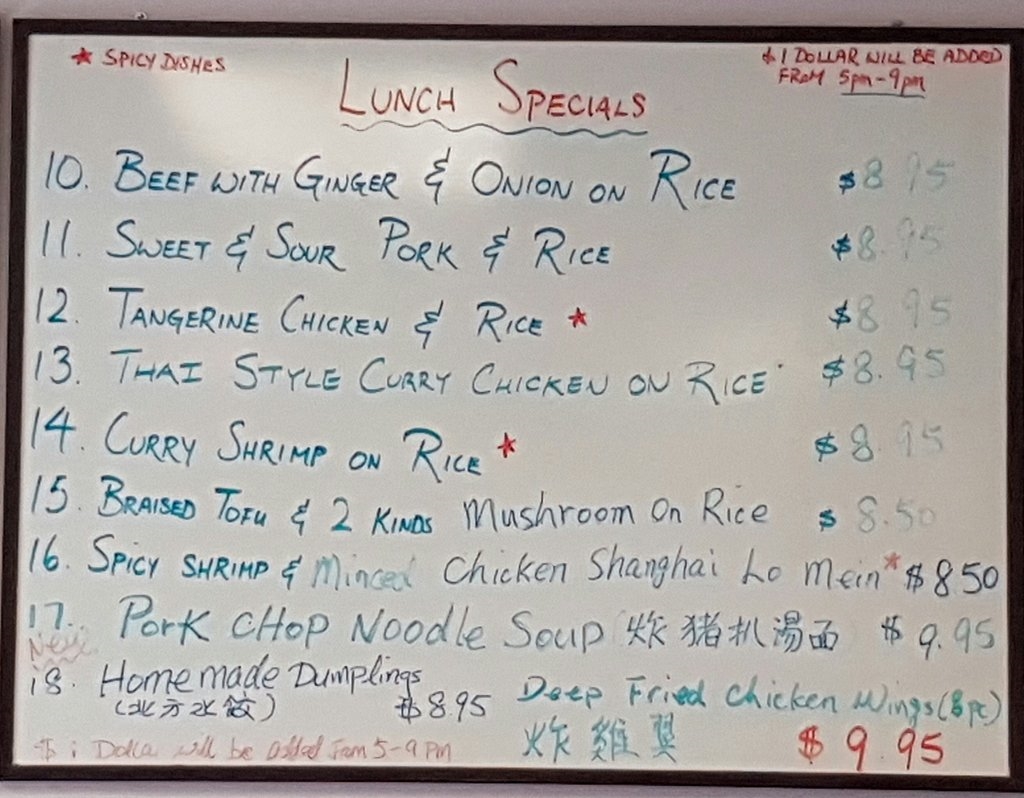 ★ SPICY DISHES
$1 DOLLAR WILL BE ADDED
FROM 5pm-9pm
LUNCH SPECIALS
10. BEEF WITH GINGER & ONION ON RICE $8.95
11. SWEET & SOUR PORK & RICE $8.95
12. TANGERINE CHICKEN & RICE ★ $8.95
13. THAI STYLE CURRY CHICKEN ON RICE $8.95
14. CURRY SHRIMP ON RICE ★ $8.95
15. BRAISED TOFU & 2 KINDS Mushroom On Rice $8.50
16. SPICY SHRIMP & Minced Chicken Shanghai Lo Mein ★ $8.50
17. Pork CHop Noodle Soup 炸猪扒湯面 $9.95
New
18. Homemade Dumplings
(北方水餃) $8.95
Deep Fried Chicken Wings (8pc)
炸雞翼 $9.95
$1 Dolla will be added From 5-9 Pm